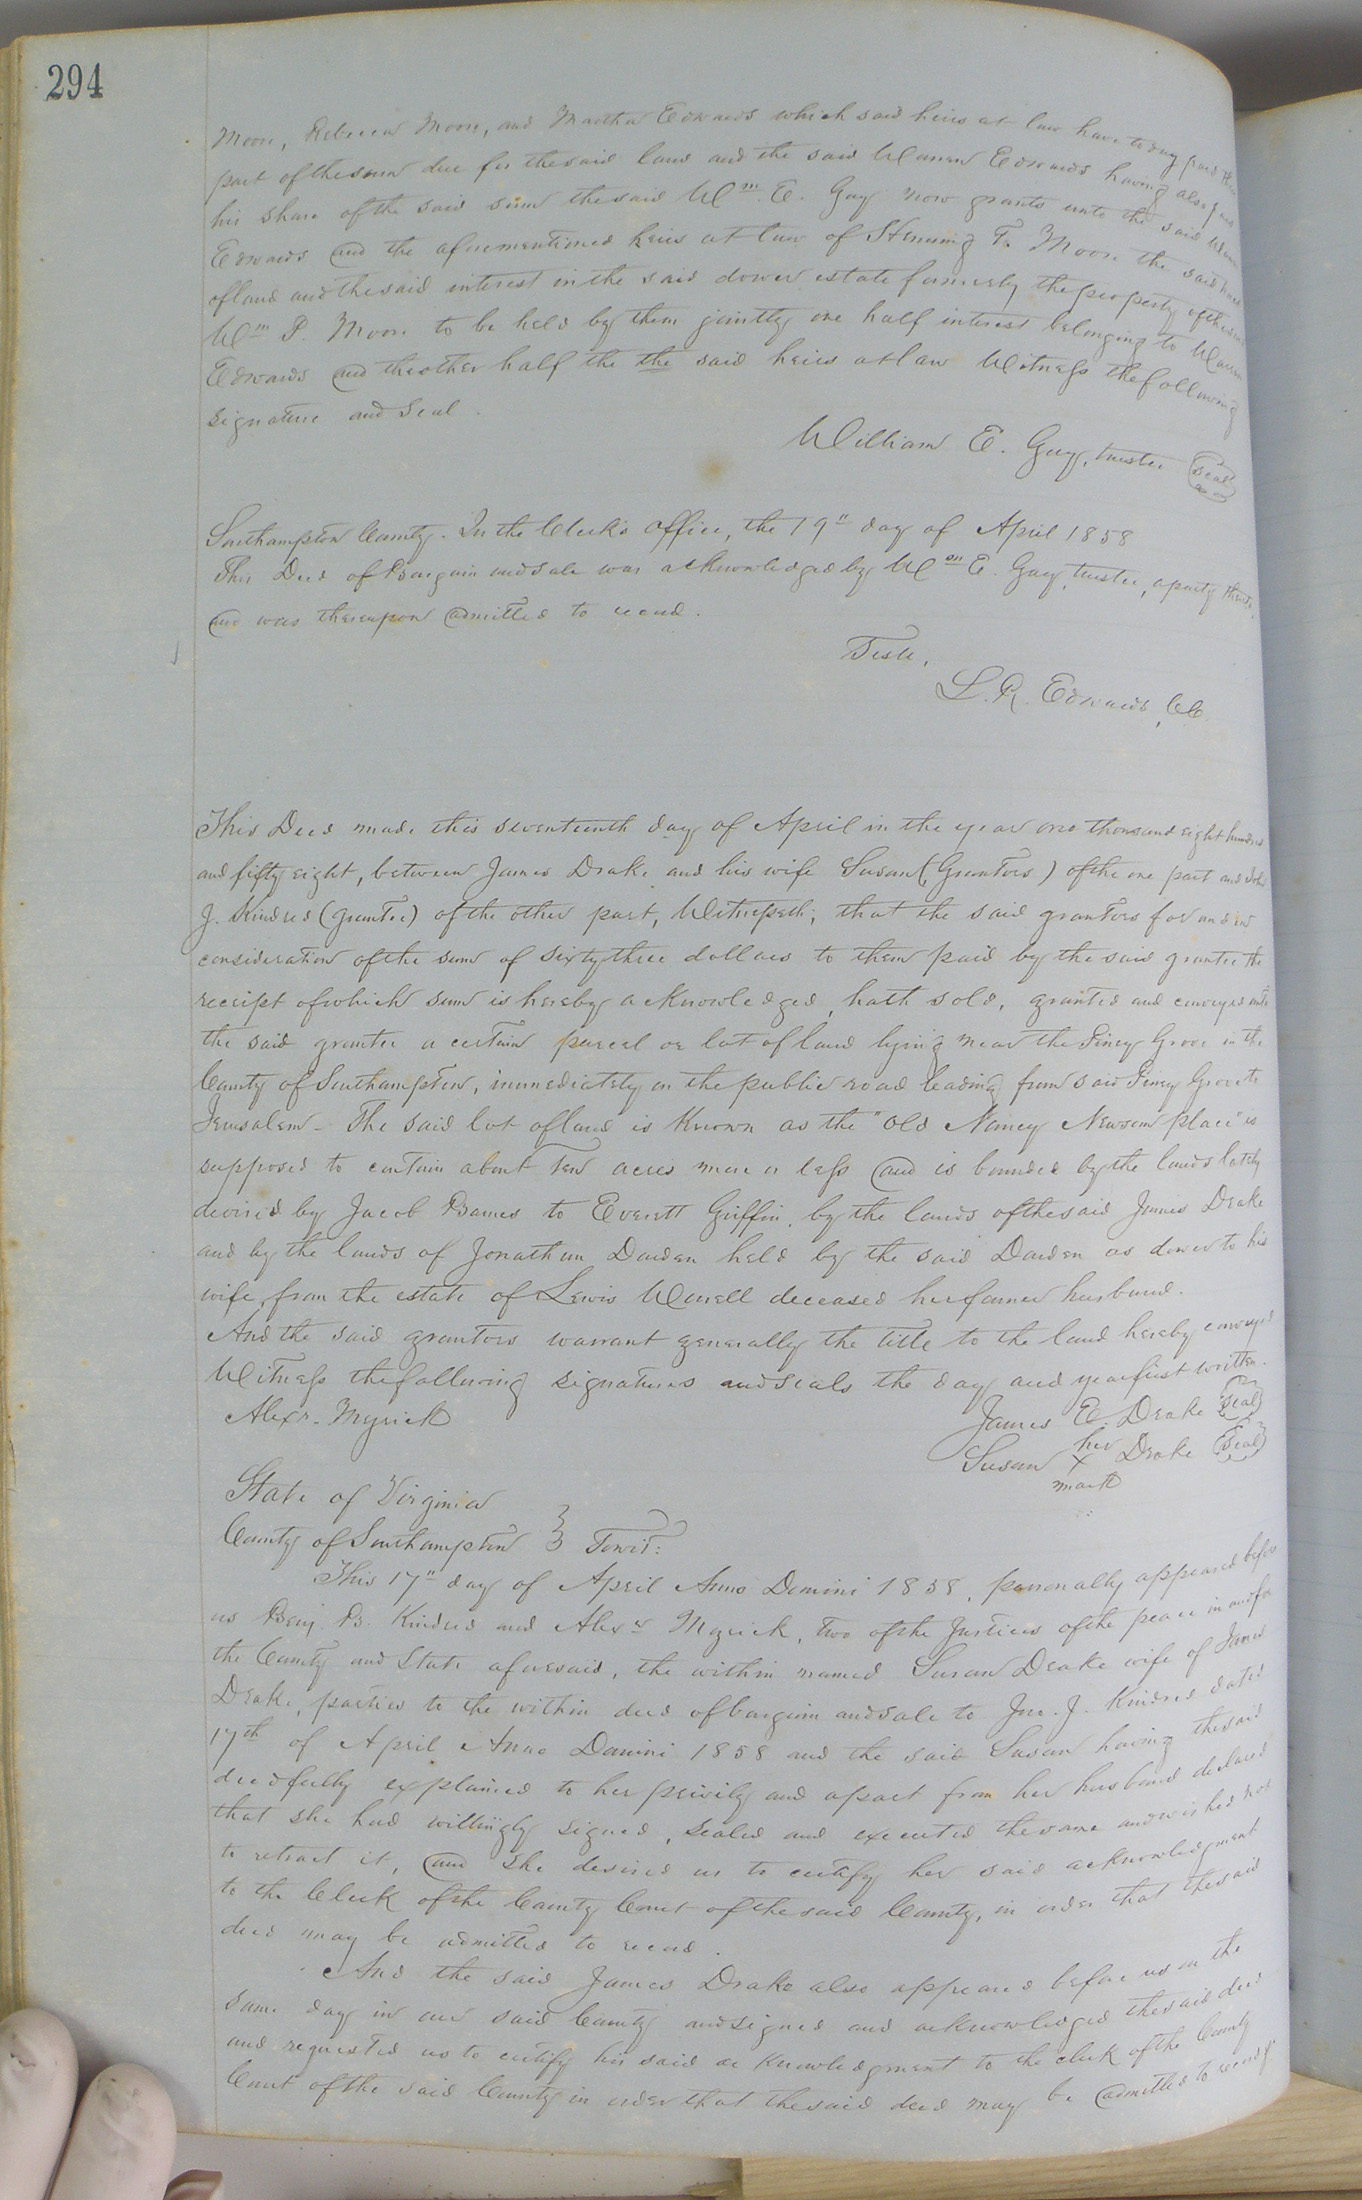 294
Moore, Rebecca Moore, and Martha Edwards which said heirs at law have to day paid their
part of the sum due for the said land and the said Warren Edwards having also paid
his share of the said sum the said Wm. E. Guy now grants unto the said Warren
Edwards and the aforementioned heirs at law of Fleming T. Moore the said
of land and the said interest in the said dower estate formerly the property of the said
Wm P. Moore to be held by them jointly one half interest belonging to Warren
Edwards and the other half the the said heirs at law Witness the following
signature and seal.
William E. Guy, trustee seal
Southampton County. In the Clerk's office, the 19" day of April 1858
This Deed of Bargain and sale was acknowledged by Wm E. Guy, trustee, a party thereto,
and was thereupon admitted to record.
Teste,
L. R. Edwards, CC.
This Deed made this seventeenth day of April in the year one thousand eight hundred
and fifty eight, between James Drake and his wife Susan (Grantors) of the one part and John
J. Kindred (grantee) of the other part, Witnesseth; that the said grantors for and in
consideration of the sum of sixty three dollars to them paid by the said grantee the
receipt of which sum is hereby acknowledged, hath sold, granted and conveyed unto
the said grantee a certain parcel or lot of land lying near the Piney Grove in the
County of Southampton, immediately on the public road leading from said Piney Grove to
Jerusalem - The said lot of land is known as the "old Nancy Newsom place" is
supposed to contain about Ten acres more or less and is bounded by the lands lately
devised by Jacob Barnes to Everett Griffin, by the lands of the said James Drake
and by the lands of Jonathan Darden held by the said Darden as dower to his
wife, from the estate of Lewis Worrell deceased her former husband.
And the said grantors warrant generally the title to the land hereby conveyed
Witness the following signatures and seals the day and year first written.
Alexr. Myrick James E. Drake seal
Susan her x mark Drake seal
State of Virginia
County of Southampton } Towit:
This 17" day of April Anno Domini 1858, personally appeared before
us Benj. B. Kindred and Alexr Myrick, two of the Justices of the peace in and for
the County and State aforesaid, the within named Susan Drake wife of James
Drake, parties to the within deed of bargain and sale to Jno. J. Kindred dated
17th of April Anno Domini 1858 and the said Susan having the said
deed fully explained to her privily and apart from her husband declared
that she had willingly signed, sealed and executed the same and wished not
to retract it, and she desired us to certify her said acknowledgment
to the Clerk of the County Court of the said County, in order that the said
deed may be admitted to record.
And the said James Drake also appeared before us on the
same day in our said County and signed and acknowledged the said deed
and requested us to certify his said acknowledgment to the clerk of the County
Court of the said County in order that the said deed may be admitted to record